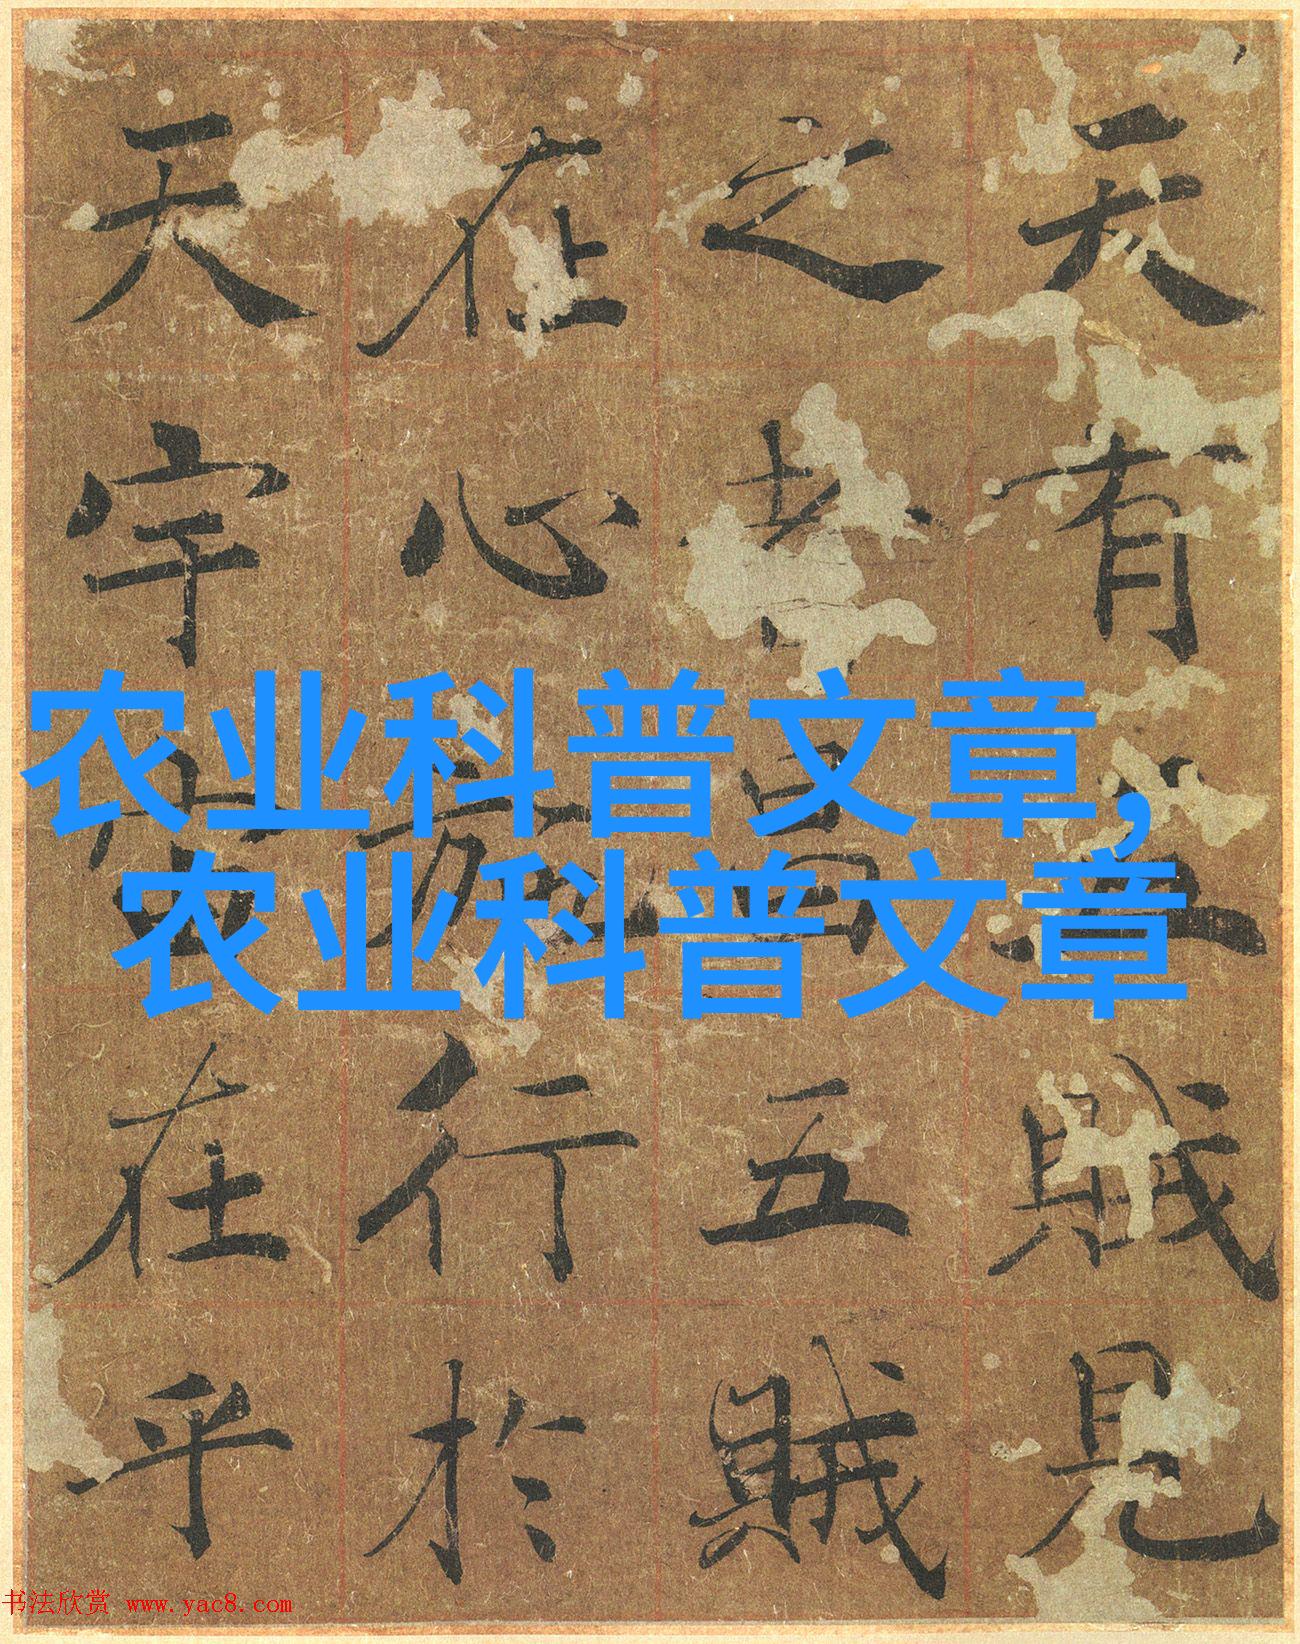 天有五賊見
之者昌五賊
在心施行於
天宇宙在乎
农业科普文章,
农业科普文章
书法欣赏 www.yac8.com